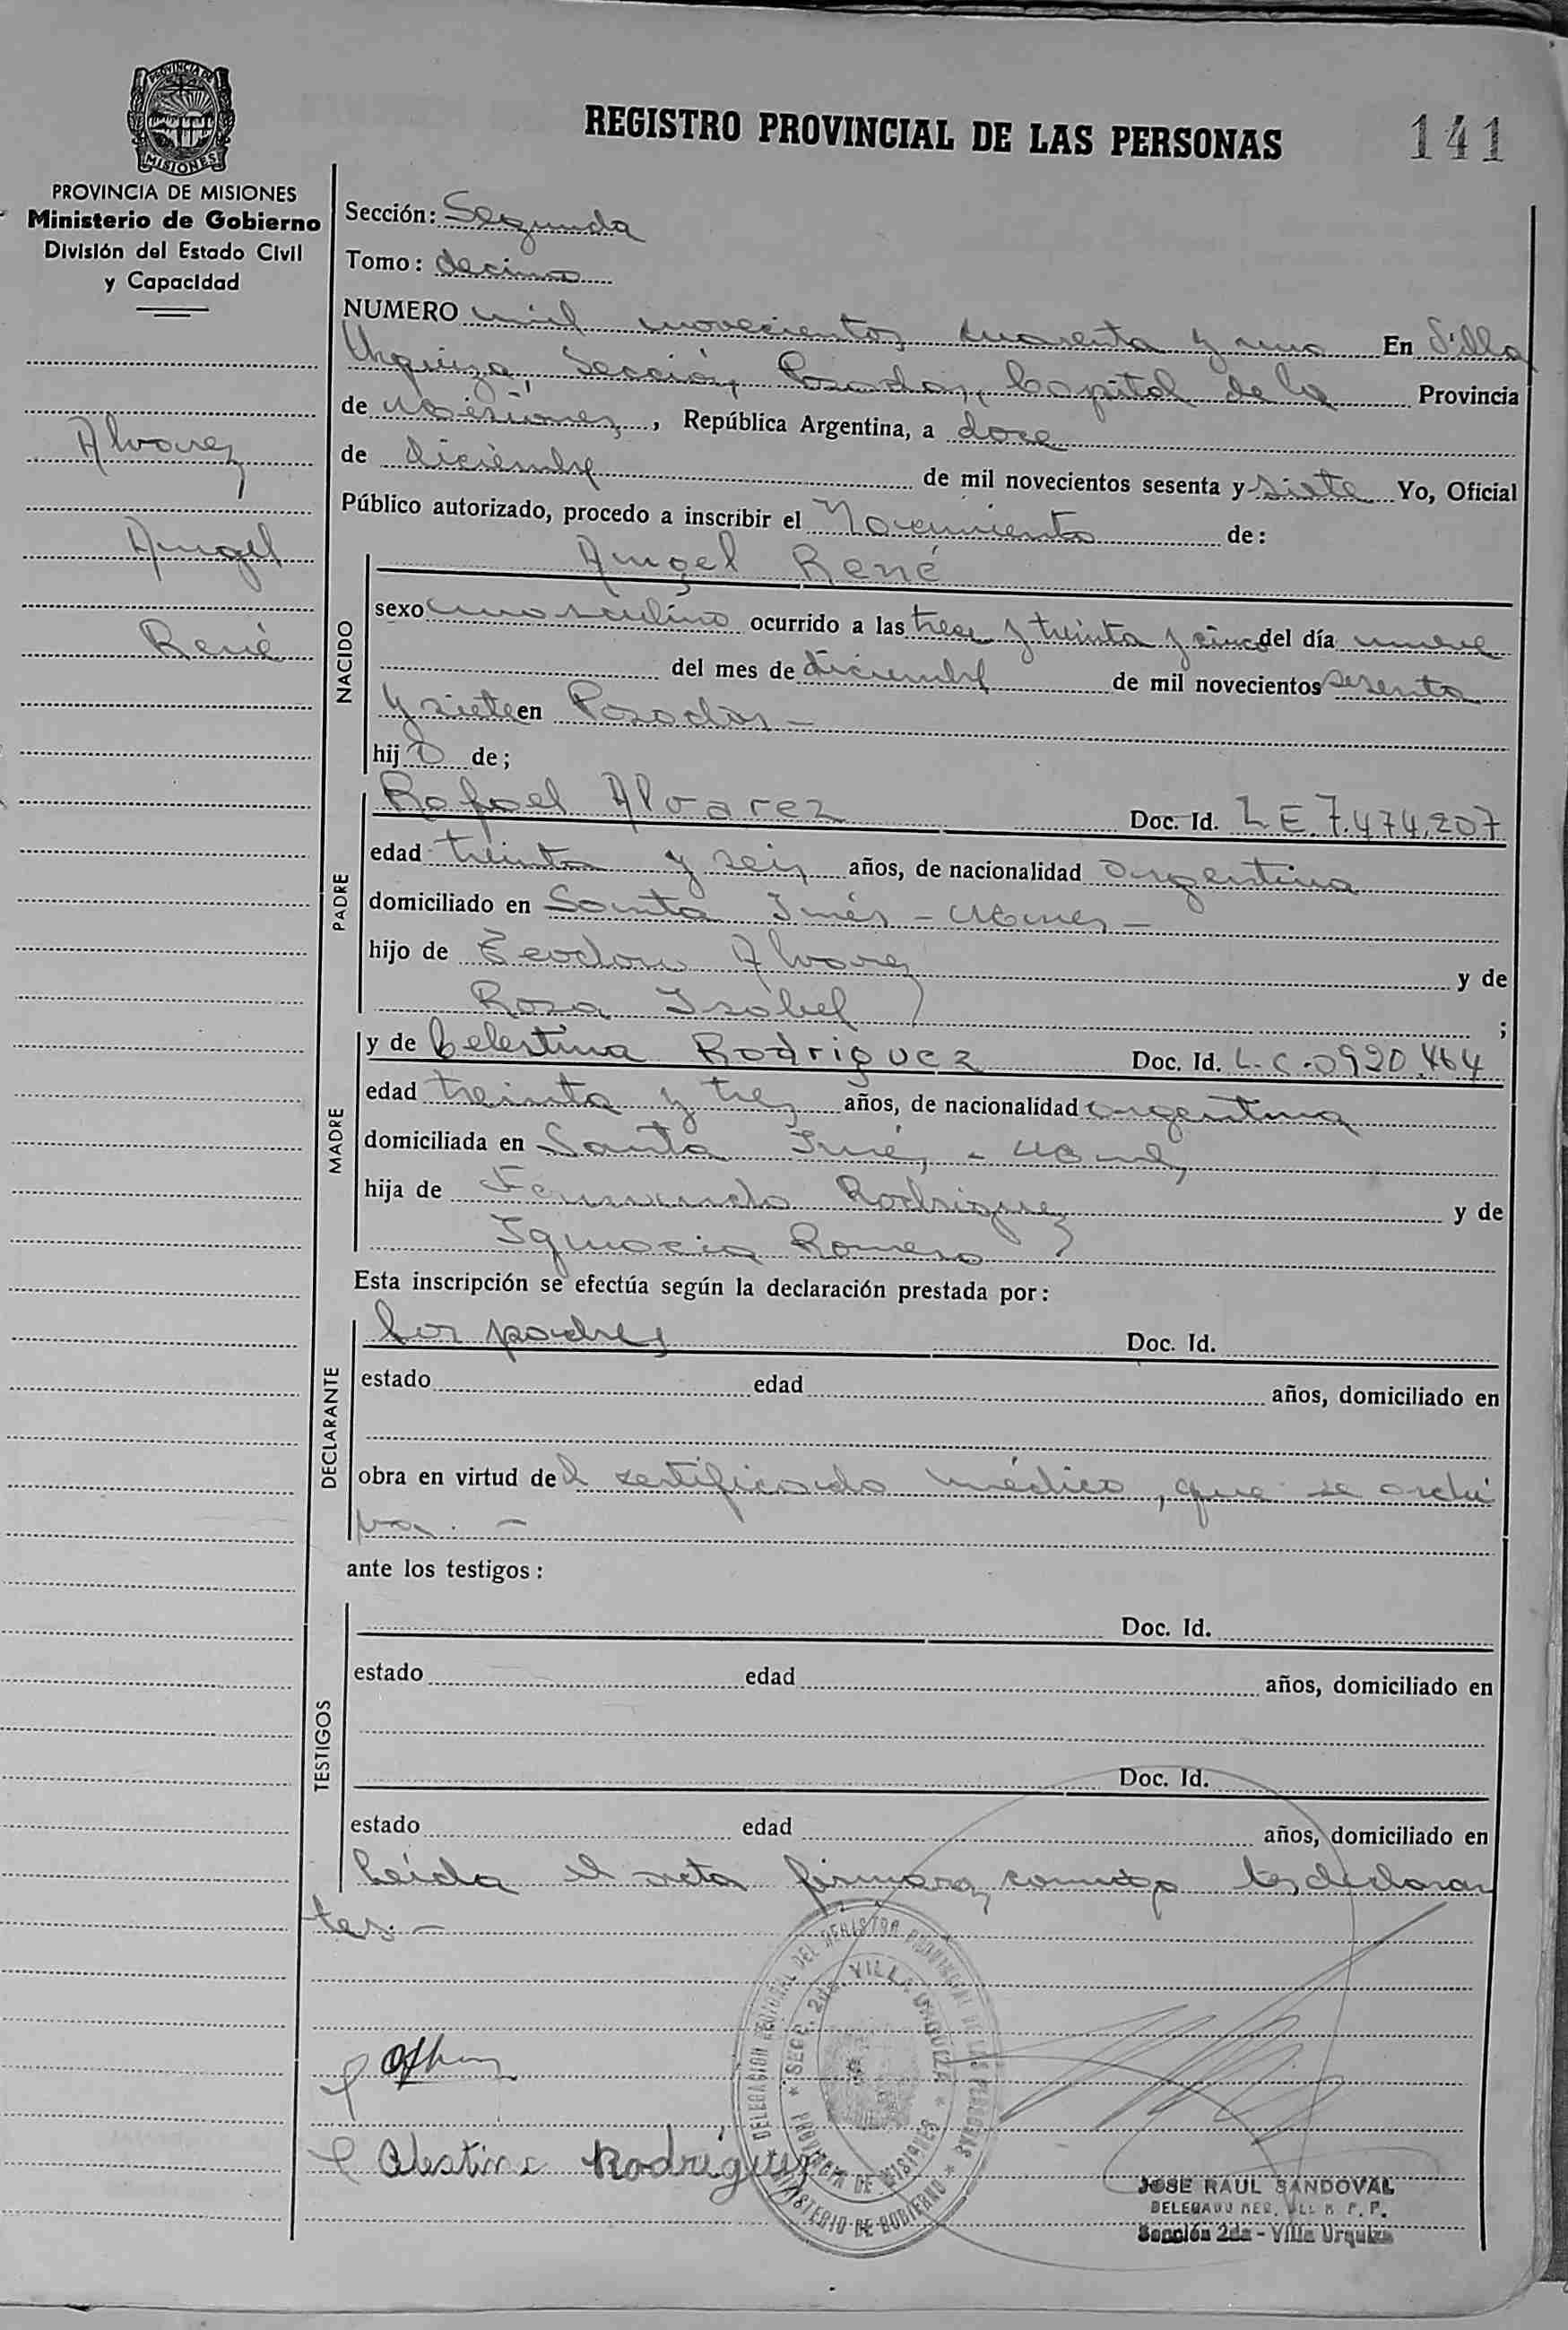 PROVINCIA DE
MISIONES
REGISTRO PROVINCIAL DE LAS PERSONAS
141
PROVINCIA DE MISIONES
Ministerio de Gobierno
División del Estado Civil
y Capacidad
Alvarez
Angel
René
Sección: Segunda
Tomo: decimo
NUMERO mil novecientos cuarenta y uno En Villa
Urquiza, Sección, Posadas, Capital de la Provincia
de Misiones, República Argentina, a doce
de diciembre de mil novecientos sesenta y siete Yo, Oficial
Público autorizado, procedo a inscribir el Nacimiento de:
NACIDO
Angel René
sexo masculino ocurrido a las trece y treinta y cinco del día nueve
del mes de diciembre de mil novecientos sesenta
y siete en Posadas -
hijo de;
PADRE
Rafael Alvarez Doc. Id. L E. 7.474.207
edad treinta y seis años, de nacionalidad argentina
domiciliado en Santa Inés - -
hijo de Teodoro Alvarez y de
Rosa Isabel ;
MADRE
y de Celestina Rodriguez Doc. Id. L. C. 0920.464
edad treinta y tres años, de nacionalidad argentina
domiciliada en Santa Inés, -
hija de Fernando Rodriguez y de
Ignacia Romero
Esta inscripción se efectúa según la declaración prestada por:
DECLARANTE
los padres Doc. Id.
estado edad años, domiciliado en
obra en virtud del certificado médico, que se archi
va. -
ante los testigos:
TESTIGOS
Doc. Id.
estado edad años, domiciliado en
Doc. Id.
estado edad años, domiciliado en
Leída el acta firman conmigo los declaran
tes. -
DELEGACION REGIONAL DEL REGISTRO PROVINCIAL DE LAS PERSONAS * MINISTERIO DE GOBIERNO *
SECC. 2da. VILLA URQUIZA * PROVINCIA DE MISIONES *
Celestina Rodriguez
JOSE RAUL SANDOVAL
DELEGADO REG. DEL R. P. P.
Sección 2da - Villa Urquiza